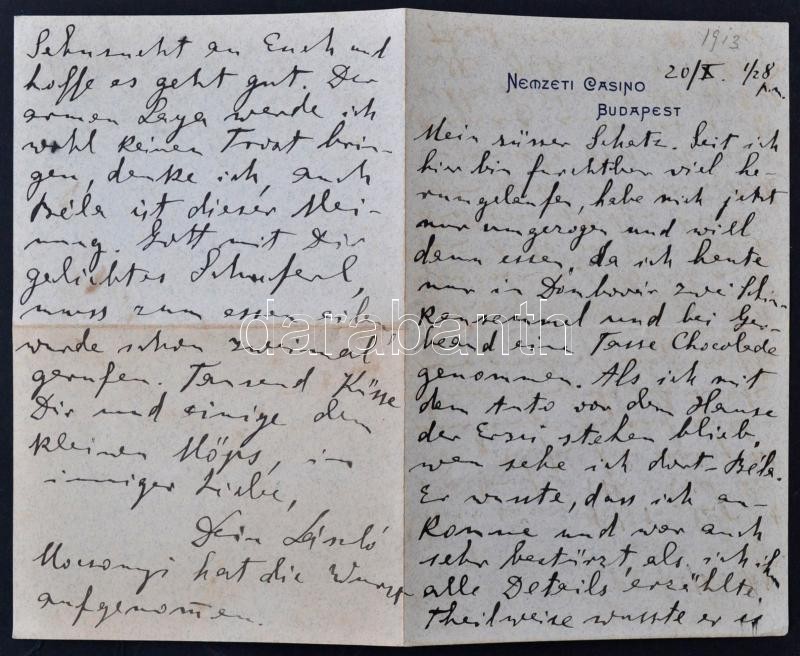 1913
NEMZETI CASINO
BUDAPEST
20/X. 1/28
p.m.
Mein süsser Schatz. Seit ich
hier bin furchtbar viel he-
rumgelaufen, habe mich jetzt
nur umgezogen und will
dann essen, da ich heute
nur in Dombovár zwei Schin-
kensemmel und bei Ger-
beaud eine Tasse Chocolade
genommen. Als ich mit
dem Auto vor dem Hause
der Erzsi stehen blieb,
wen sehe ich dort - Béla.
Er wusste, dass ich an-
komme und war auch
sehr bestürzt, als ich ihm
alle Details erzählte.
Theilweise wusste er es
Sehnsucht an Euch und
hoffe es geht gut. Der
armen Laya werde ich
wohl keinen Trost brin-
gen, denke ich, auch
Béla ist dieser Mei-
nung. Gott mit Dir
geliebtes Schuferl,
muss zum essen eilen
wurde schon zweimal
gerufen. Tausend Küsse
Dir und einige dem
kleinen Möps, in
inniger Liebe,
Dein László
Mocsonyi hat die Wurst
aufgenommen.
darabanth